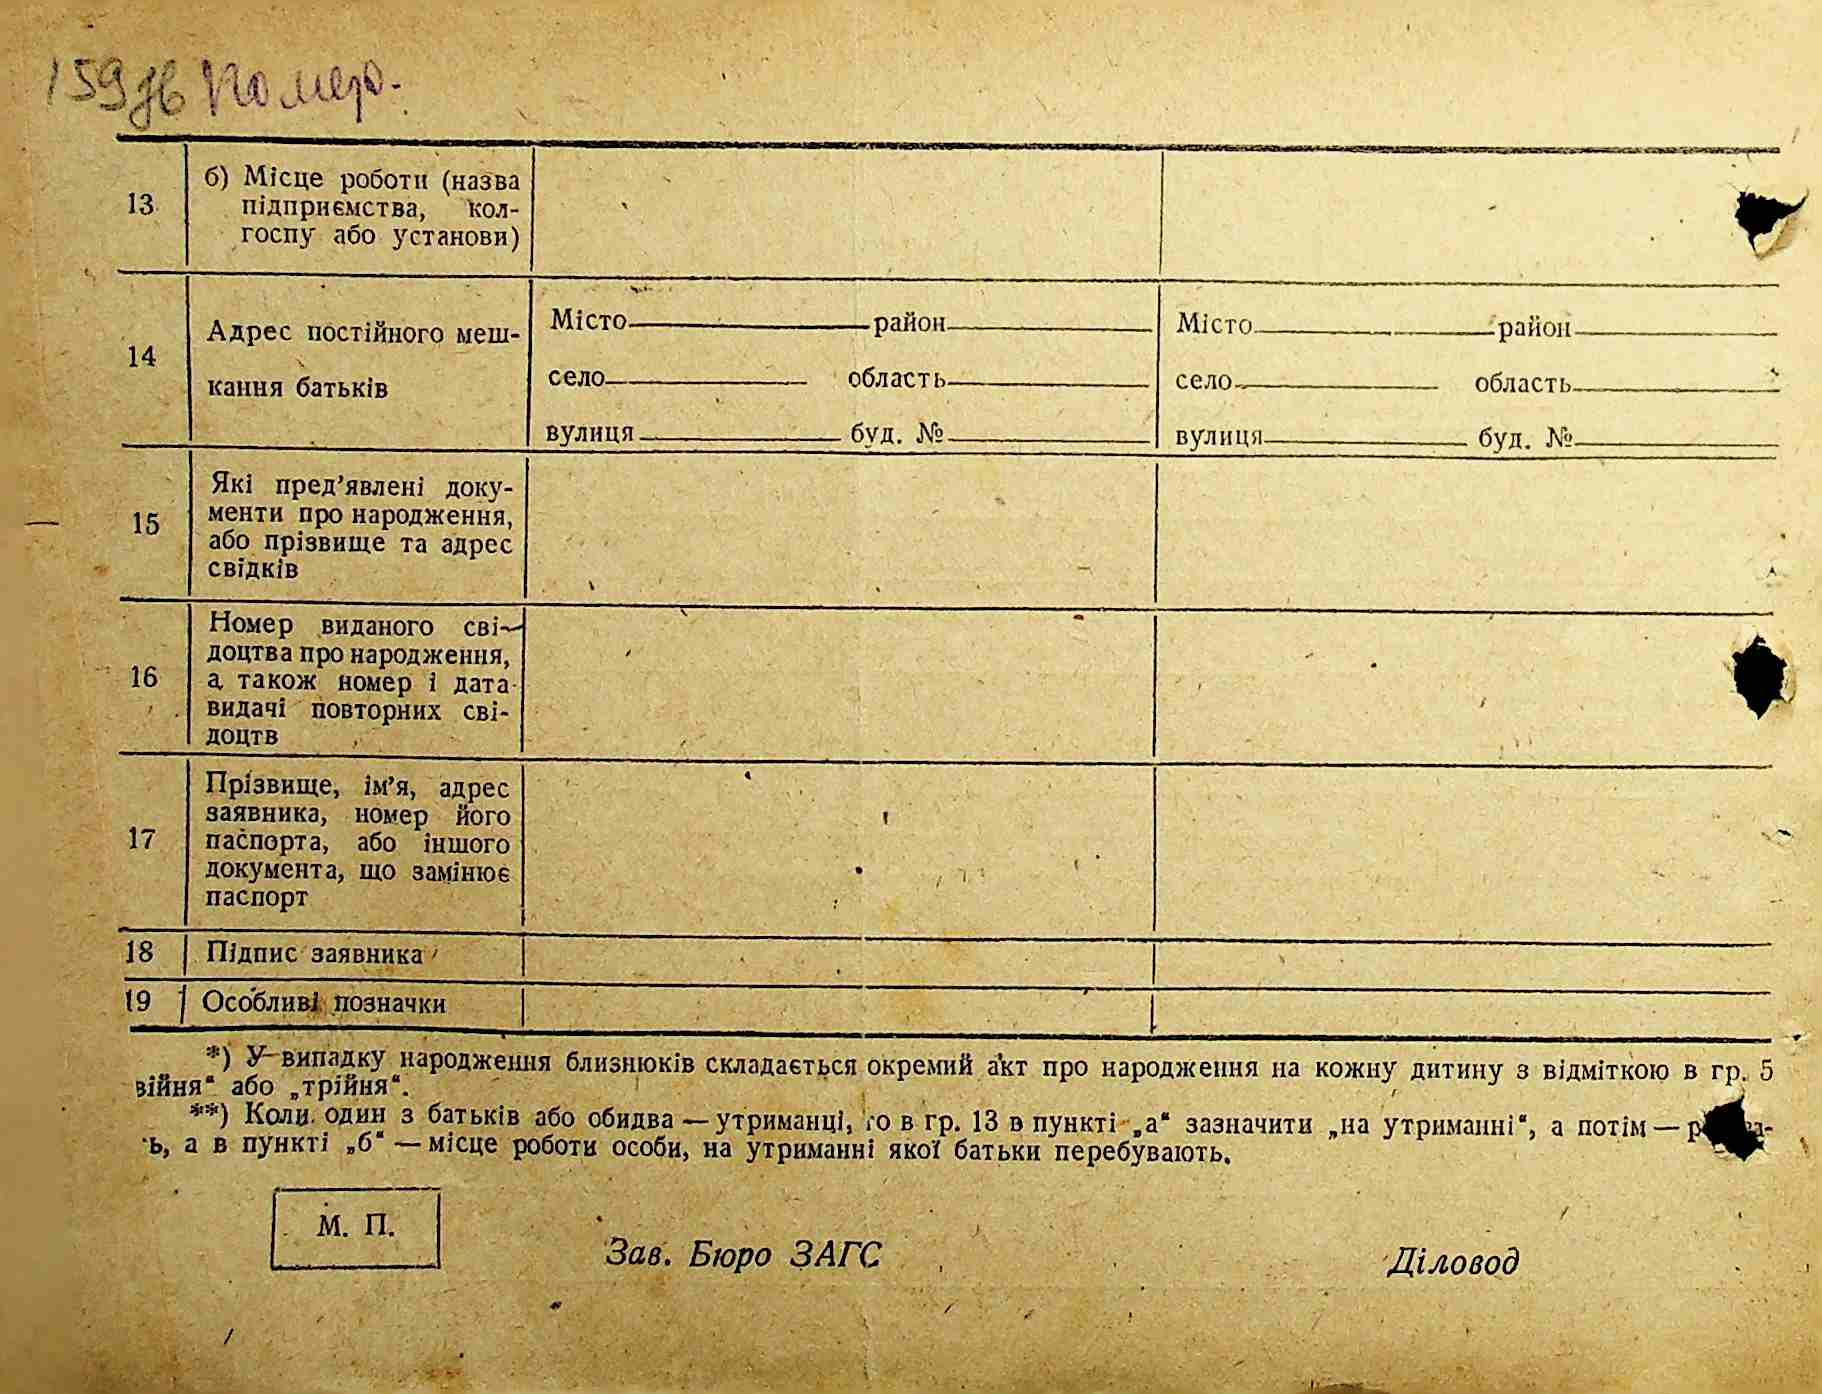 159зв Номер.
13 б) Місце роботи (назва
підприємства, кол-
госпу або установи)
14 Адрес постійного меш-
кання батьків
Місто район
село область
вулиця буд. №
Місто район
село область
вулиця буд. №
15 Які пред’явлені доку-
менти про народження,
або прізвище та адрес
свідків
16 Номер виданого сві-
доцтва про народження,
а також номер і дата
видачі повторних сві-
доцтв
17 Прізвище, ім’я, адрес
заявника, номер його
паспорта, або іншого
документа, що замінює
паспорт
18 Підпис заявника
19 Особливі позначки
*) У випадку народження близнюків складається окремий акт про народження на кожну дитину з відміткою в гр. 5
війня“ або „трійня“.
**) Коли один з батьків або обидва — утриманці, то в гр. 13 в пункті „а“ зазначити „на утриманні“, а потім —
ь, а в пункті „б“ — місце роботи особи, на утриманні якої батьки перебувають.
М. П.
Зав. Бюро ЗАГС Діловод